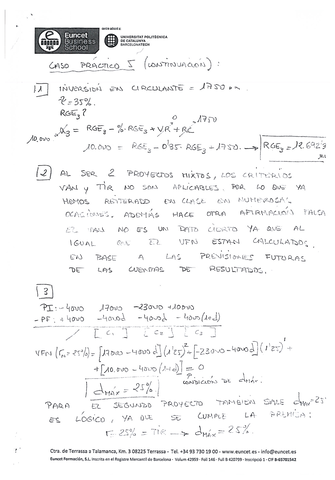 Euncet
Business
School
UNIVERSITAT POLITÈCNICA
DE CATALUNYA
BARCELONATECH
CASO PRÁCTICO 5 (CONTINUACIÓN):
1 INVERSIÓN EN CIRCULANTE = 1750
t = 35%.
RGE3?
10.000 = RGE3 - 0'35·RGE3 + 1750. → RGE3 = 12.692'3
2 AL SER 2 PROYECTOS MIXTOS, LOS CRITERIOS
VAN y TIR NO SON APLICABLES. POR LO QUE YA
HEMOS REITERADO EN CLASE EN NUMEROSAS
OCASIONES. ADEMÁS HACE OTRA AFIRMACIÓN FALSA
EL VAN NO ES UN DATO CIERTO YA QUE AL
IGUAL QUE EL VFN ESTAN CALCULADOS
EN BASE A LAS PREVISIONES FUTURAS
DE LAS CUENTAS DE RESULTADOS.
3
PI: -4000 17000 -23000 +10000
- PF: +4000 -4000d -4000d -4000(1+d)
[C1] [C2] [C3]
VFN (r=25%) = [17000 - 4000d](1'25)² + [-23000 - 4000d](1'25)¹ +
+ [10.000 - 4000(1+d)] = 0
dmáx = 25% CONDICIÓN DE dmáx.
PARA EL SEGUNDO PROYECTO TAMBIÉN SALE dmáx = 25%
ES LÓGICO, YA QUE SE CUMPLE LA PREMISA:
r = 25% = TIR → dmáx = 25%.
Ctra. de Terrassa a Talamanca, Km. 3 08225 Terrassa - Tel. +34 93 730 19 00 - www.euncet.es - info@euncet.es
Euncet Formación, S.L. inscrita en el Registre Mercantil de Barcelona